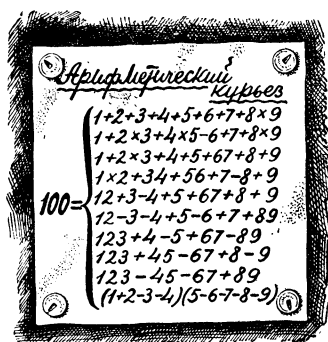 Арифметический
курьез
1+2+3+4+5+6+7+8×9
1+2×3+4×5-6+7+8×9
1+2×3+4+5+67+8+9
1×2+34+56+7-8+9
12+3-4+5+67+8+9
100= 12-3-4+5-6+7+89
123+4-5+67-89
123+45-67+8-9
123-45-67+89
(1+2-3-4)(5-6-7-8-9)